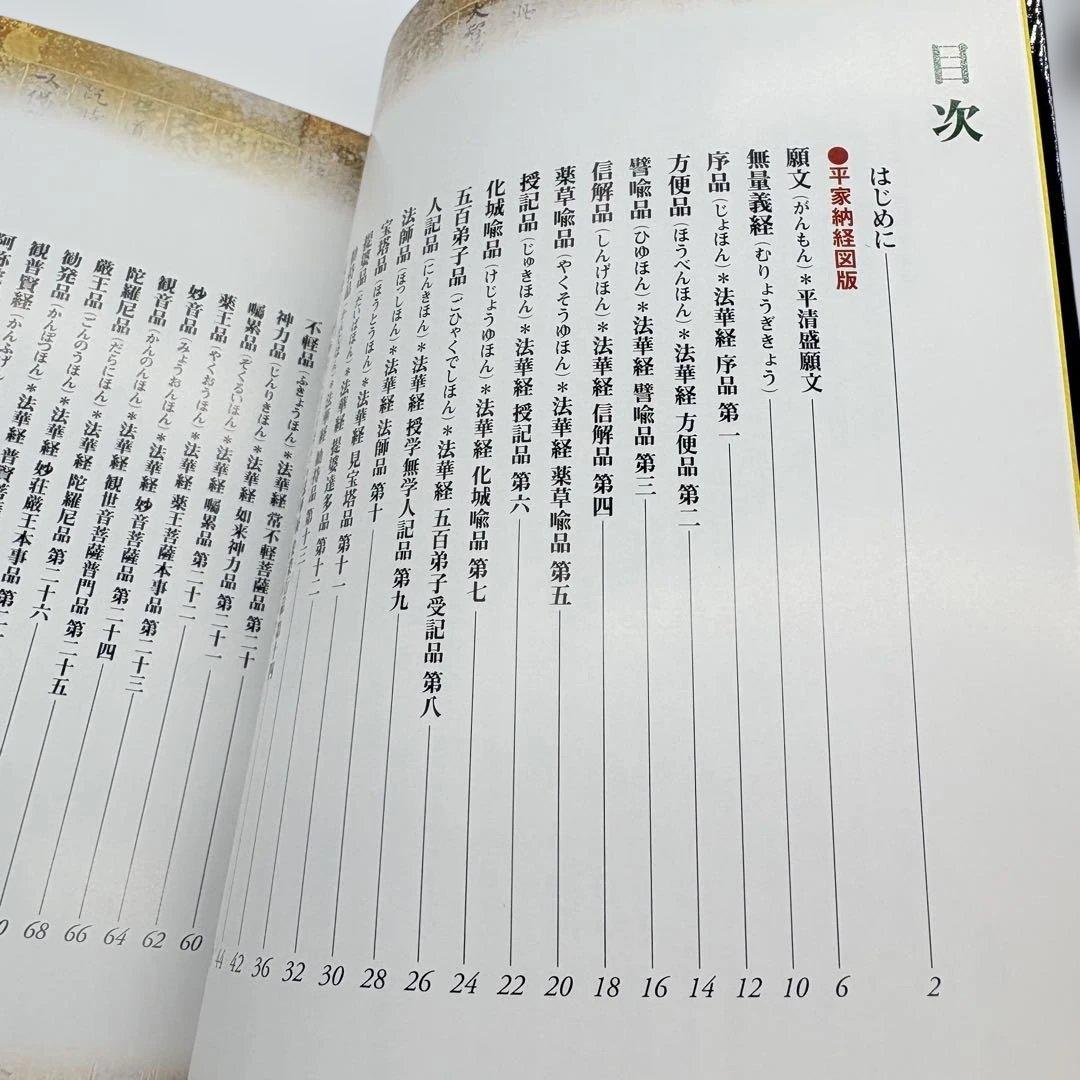 目次
はじめに 2
●平家納経図版
願文（がんもん）＊平清盛願文 6
無量義経（むりょうぎきょう） 10
序品（じょほん）＊法華経 序品 第一 12
方便品（ほうべんほん）＊法華経 方便品 第二 14
譬喩品（ひゆほん）＊法華経 譬喩品 第三 16
信解品（しんげほん）＊法華経 信解品 第四 18
薬草喩品（やくそうゆほん）＊法華経 薬草喩品 第五 20
授記品（じゅきほん）＊法華経 授記品 第六 22
化城喩品（けじょうゆほん）＊法華経 化城喩品 第七 24
五百弟子品（ごひゃくでしほん）＊法華経 五百弟子受記品 第八 26
人記品（にんきほん）＊法華経 授学無学人記品 第九 28
法師品（ほっしほん）＊法華経 法師品 第十 30
宝塔品（ほうとうほん）＊法華経 見宝塔品 第十一 32
提婆品（だいばほん）＊法華経 提婆達多品 第十二 36
勧持品 ＊法華経 勧持品 第十三 42
44
不軽品（ふきょうほん）＊法華経 常不軽菩薩品 第二十
神力品（じんりきほん）＊法華経 如来神力品 第二十一 60
嘱累品（ぞくるいほん）＊法華経 嘱累品 第二十二 62
薬王品（やくおうほん）＊法華経 薬王菩薩本事品 第二十三 64
妙音品（みょうおんほん）＊法華経 妙音菩薩品 第二十四 66
観音品（かんのんほん）＊法華経 観世音菩薩普門品 第二十五 68
陀羅尼品（だらにほん）＊法華経 陀羅尼品 第二十六
厳王品（ごんのうほん）＊法華経 妙荘厳王本事品
勧発品（かんぼつほん）＊法華経 普賢菩
観普賢経（かんふげん
阿弥